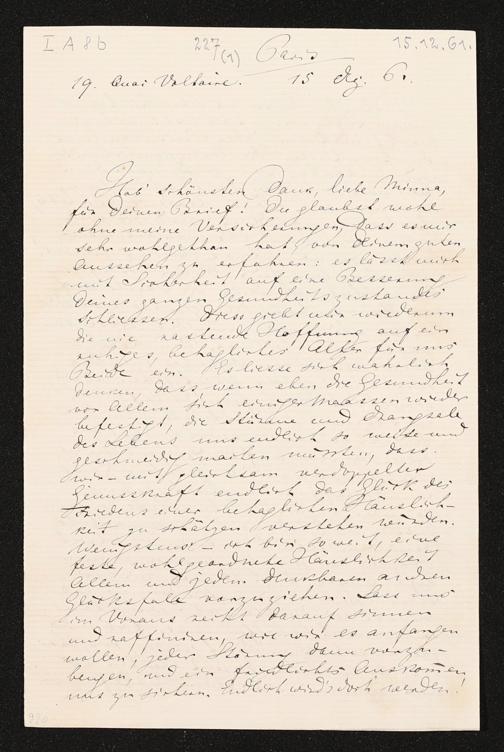 I A 8b 227 (1) 15.12.61.
Paris
19. Quai Voltaire. 15 Dez. 61.
Hab' schönsten Dank, liebe Minna,
für Deinen Brief! Du glaubst wohl
ohne meine Versicherungen, dass es mir
sehr wohlgethan hat, von Deinem guten
Aussehen zu erfahren: es lässt mich
mit Sicherheit auf eine Besserung
Deines ganzen Gesundheitszustandes
schliessen. Diess giebt mir wiederum
die nie rastende Hoffnung auf ein
ruhiges, behagliches Alter für uns
Beide ein. Es liesse sich wahrlich
denken, dass wenn eben die Gesundheit
vor Allem sich einigermaassen wieder
befestigt, die Stürme und Drangsale
des Lebens uns endlich so weise und
geschmeidig machen müssten, dass
wir – mit gleichsam verdoppelter
Genusskraft endlich das Glück des
Friedens einer behaglichen Häuslich-
keit zu schätzen verstehen würden.
Wenigstens – ich bin so weit, eine
feste, wohlgeordnete Häuslichkeit
Allem und jedem denkbaren andren
Glücksfall vorzuziehen. Lass uns
im Voraus recht darauf sinnen
und raffiniren, wie wir es anfangen
wollen, jeder Störung dann vorzu-
beugen, und ein friedliches Auskommen
uns zu sichern. Endlich wird's doch werden!